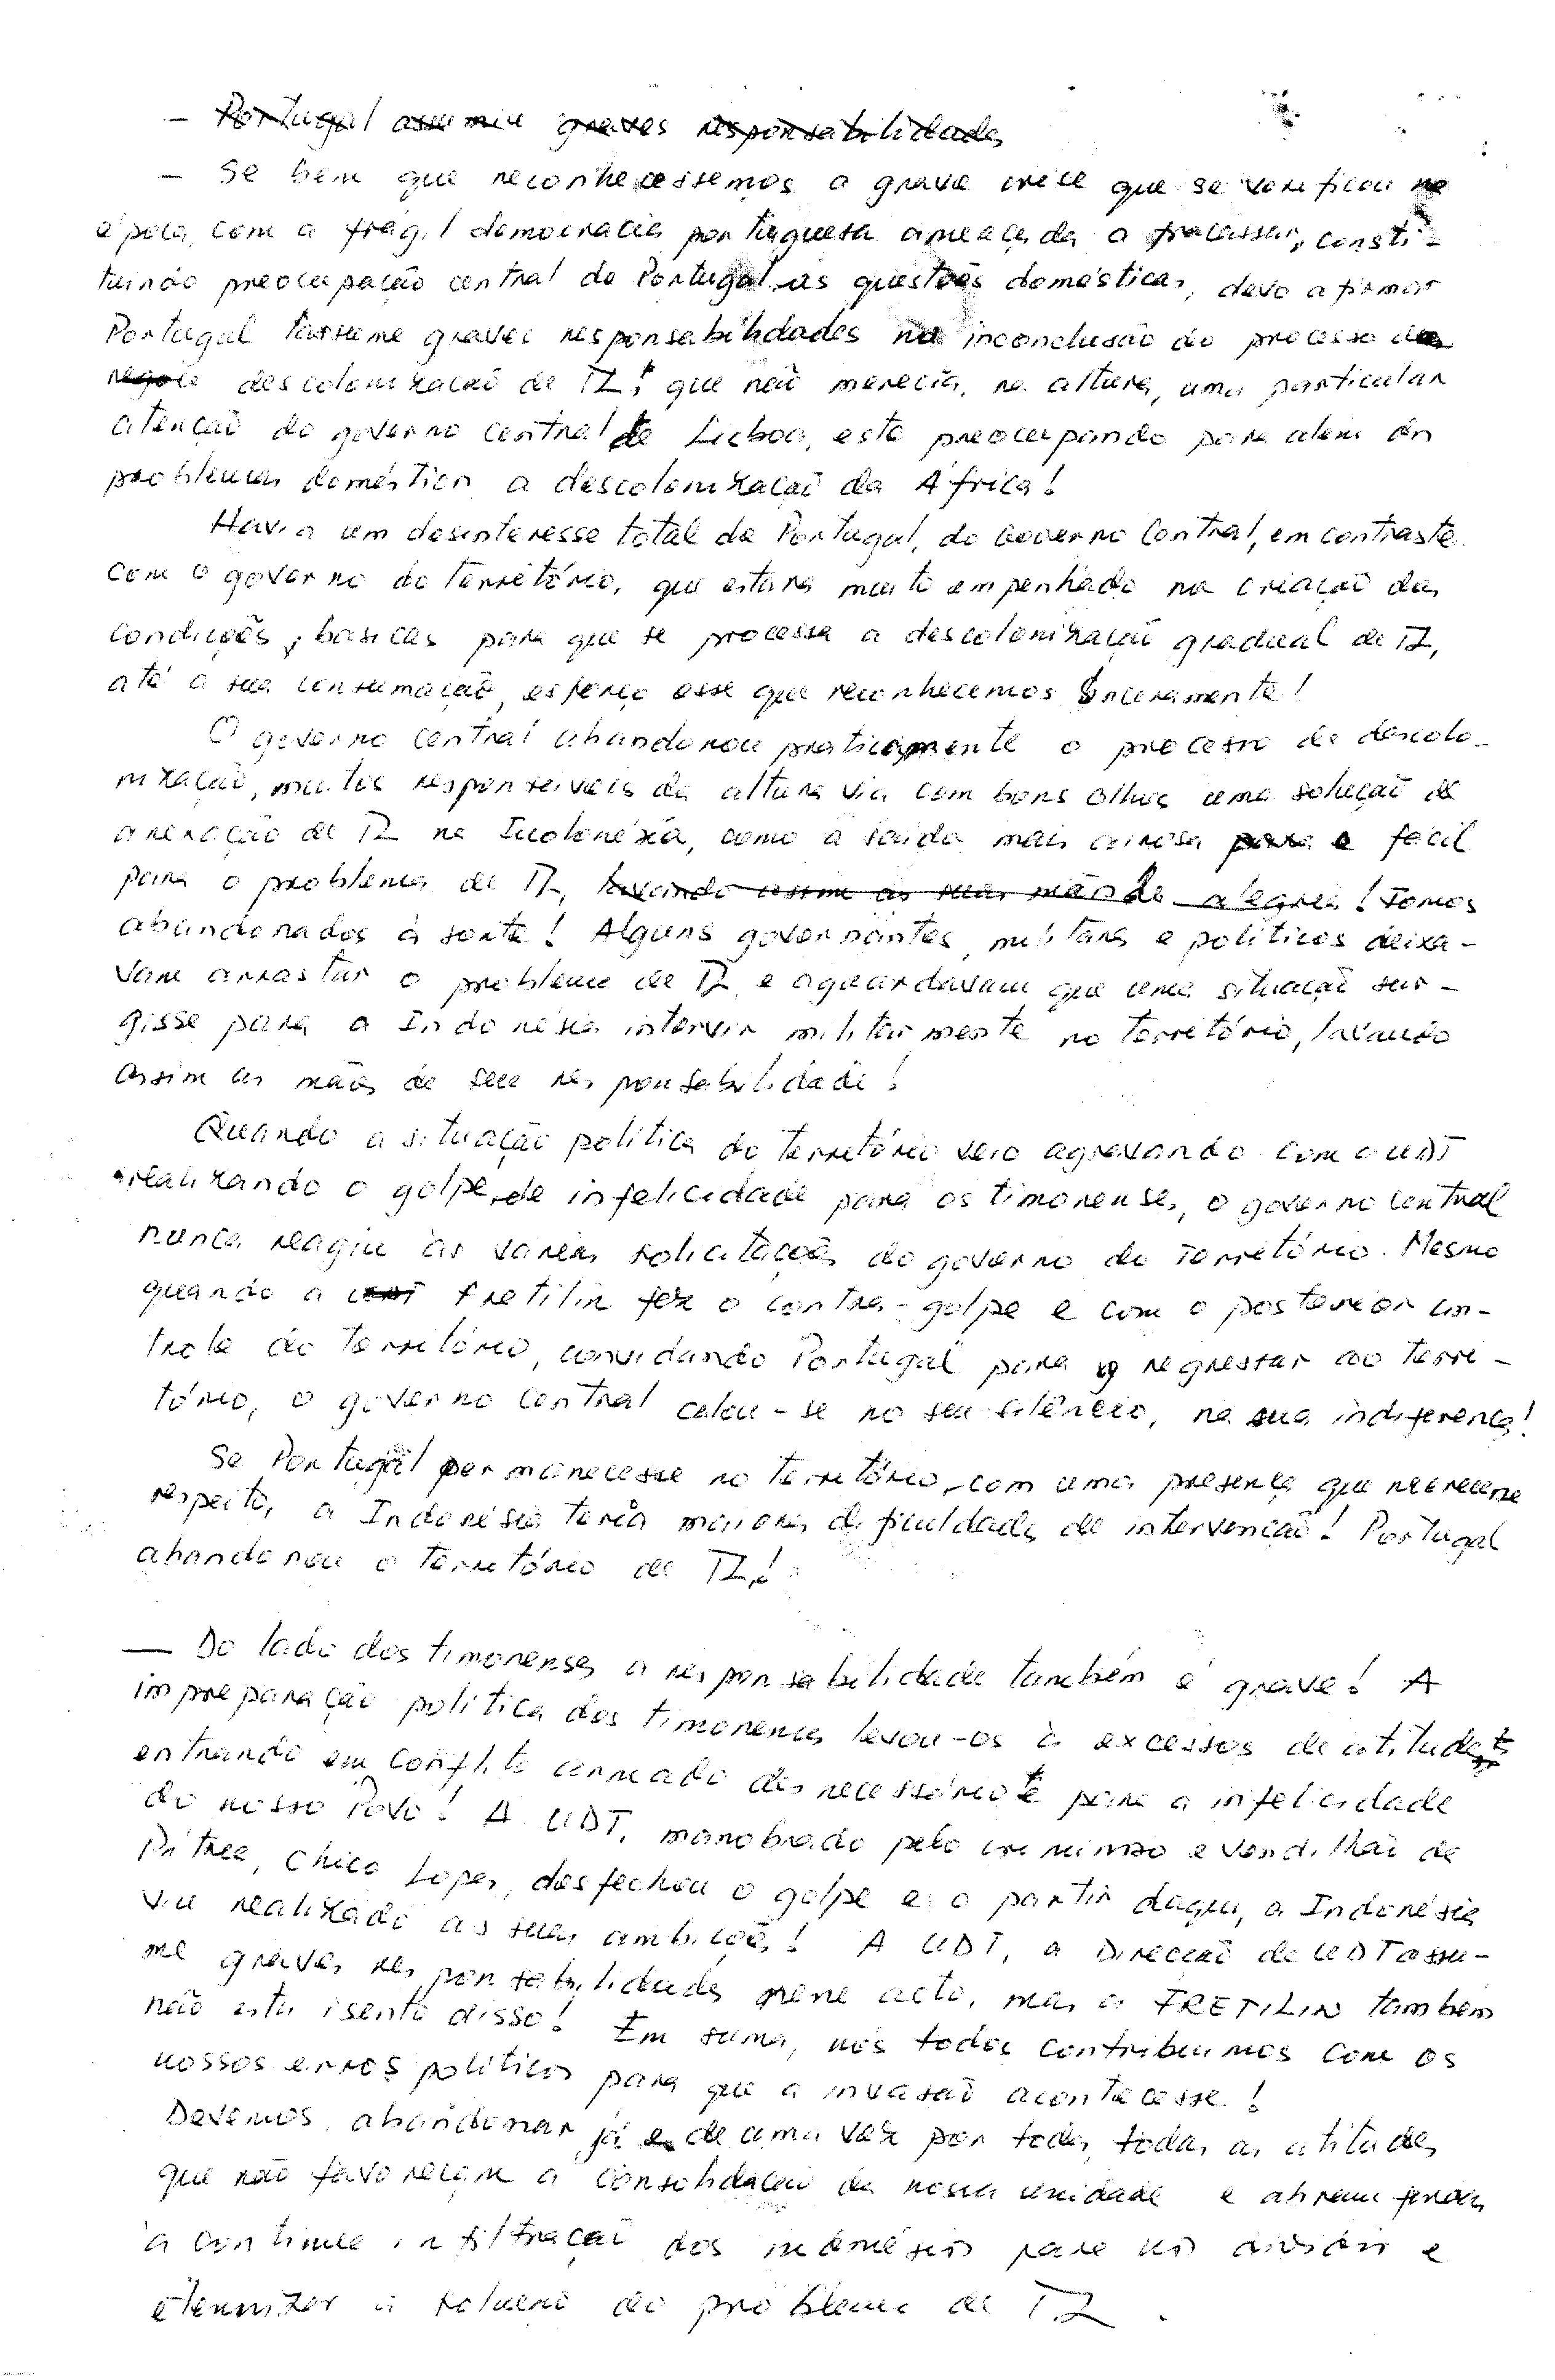 - Portugal assumiu graves responsabilidades
- Se bem que reconhecessemos a grave crise que se verificou na
época, com a frágil democracia portuguesa ameaçada a fracassar, consti-
tuindo preocupação central de Portugal as questões domésticas, devo afirmar
Portugal assume graves responsabilidades na inconclusão do processo de
descolonização de TL! que não merecia, na altura, uma particular
atenção do governo central de Lisboa, este preocupando para alem dos
problemas domésticos a descolonização da África!
Havia um desinteresse total de Portugal, do Governo Central, em contraste
com o governo do território, que estava muito empenhado na criação das
condições, básicas para que se processa a descolonização gradual de TL,
até a sua consumação, esforço esse que reconhecemos sinceramente!
O governo central abandonou praticamente o processo de descolo-
nização, muitos responsáveis da altura via com bons olhos uma solução de
anexação de TL na Indonésia, como a saída mais airosa e fácil
para o problema de TL, lavando assim as suas mãos de alegria! Fomos
abandonados à sorte! Alguns governantes, militares e políticos deixa-
vam arrastar o problema de TL e aguardavam que uma situação sur-
gisse para a Indonésia intervir militarmente no território, lavando
assim as mãos de sua responsabilidade!
Quando a situação política do território veio agravando com a UDT
realizando o golpe de infelicidade para os timorenses, o governo central
nunca reagiu às várias solicitações do governo do território. Mesmo
quando a UDT Fretilin fez o contra-golpe e com o posterior con-
trole do território, convidando Portugal para regressar ao terri-
tório, o governo central calou-se no seu silêncio, na sua indiferença!
Se Portugal permanecesse no território, com uma presença que merecesse
respeito, a Indonésia teria maiores dificuldades de intervenção! Portugal
abandonou o território de TL!
— Do lado dos timorenses a responsabilidade também é grave! A
impreparação política dos timorenses levou-os à excessos de atitudes
entrando em conflito armado desnecessário e para a infelicidade
do nosso Povo! A UDT, manobrado pelo criminoso e vendilhão de
Pátria, Chico Lopes, desfechou o golpe e a partir daqui, a Indonésia
viu realizado as suas ambições! A UDT, a Direcção da UDT assu-
me graves responsabilidades nesse acto, mas a FRETILIN também
não está isento disso! Em suma, nós todos contribuimos com os
nossos erros políticos para que a invasão acontecesse!
Devemos abandonar já e de uma vez por todas, todas as atitudes
que não favoreçam a consolidação da nossa unidade e abrem
a continua infiltração dos indonésios para nos dividir e
eternizar a solução do problema de TL.